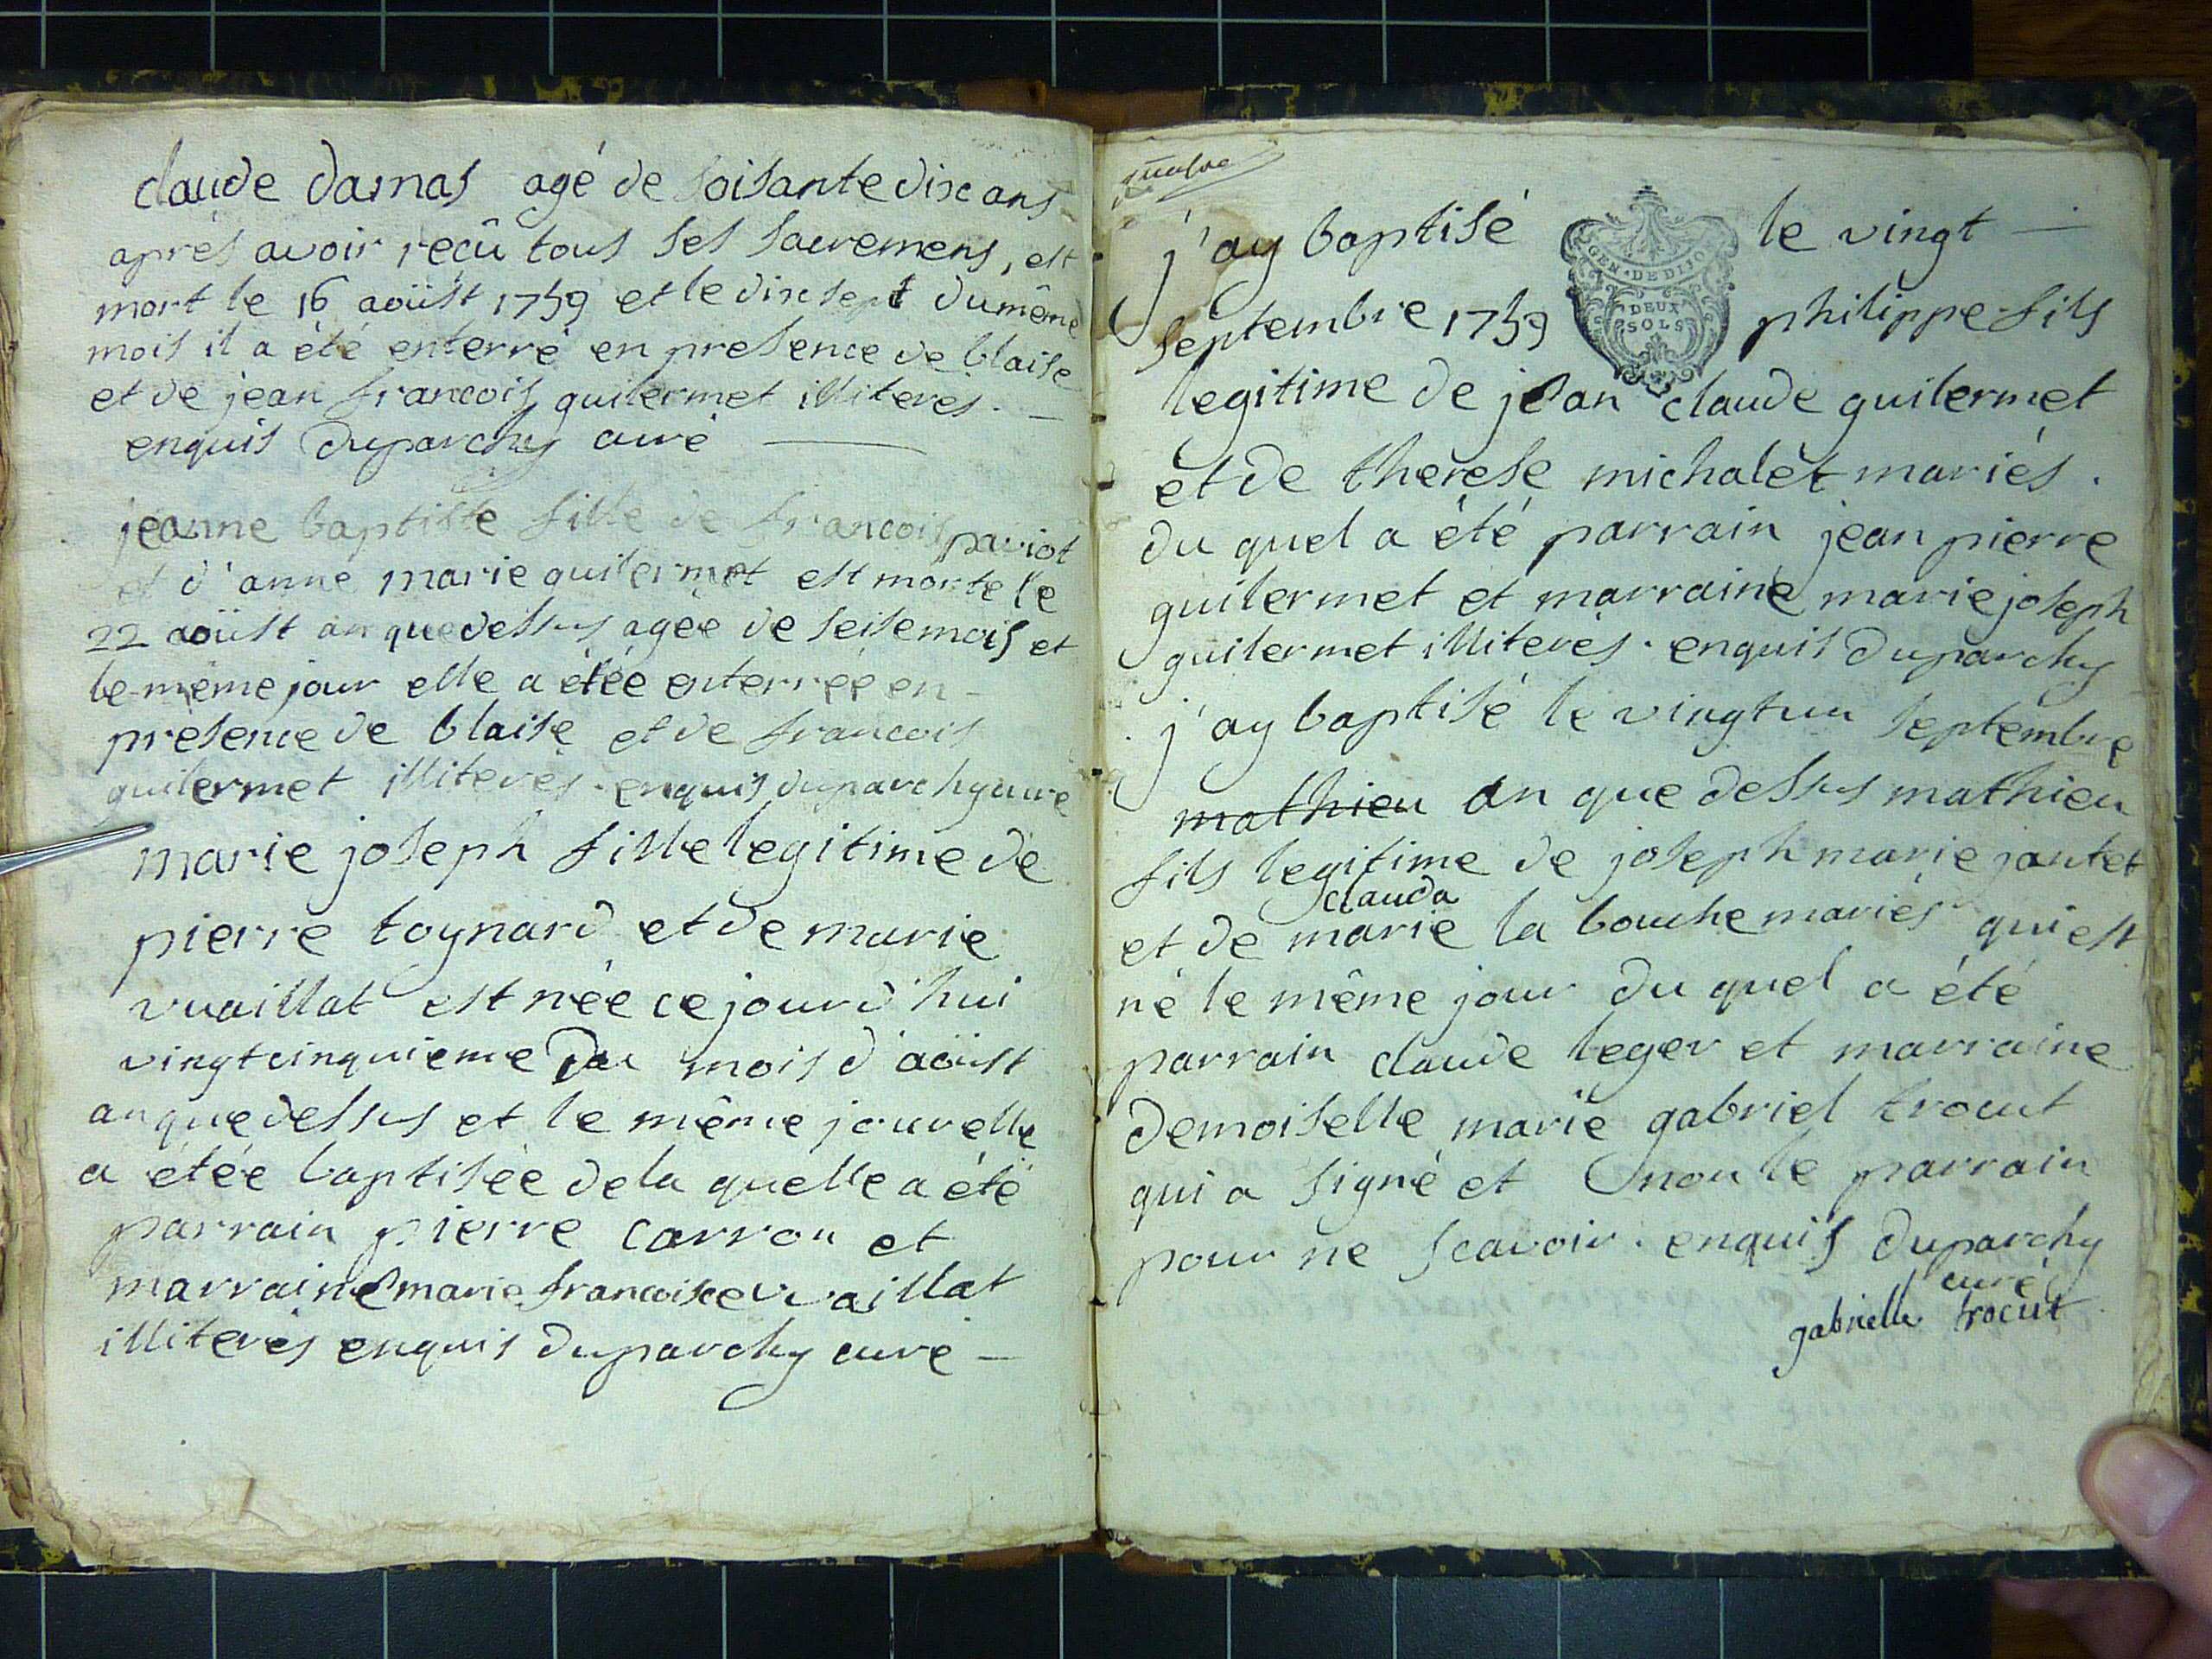 claude damas agé de soisante dix ans
aprés avoir reçû tous ses sacremens, est
mort le 16 aoüst 1759 et le dix sept du même
mois il a été enterré en presence de blaise
et de jean francois guilermet illiterés. —
enquis duparchy curé —
jeanne baptiste fille de francois pariot
et d'anne marie guilermet est morte le
22 aoüst an que dessus agée de seise mois et
le même jour elle a étée enterrée en -
présence de blaise et de francois
guilermet illiterés. enquis duparchy curé
marie joseph fille legitime de
pierre toynard et de marie
vuaillat est née ce jourd'hui
vingt cinquieme du mois d'aoüst
an que dessus et le même jour elle
a étée baptisée de la quelle a été
parrain pierre carron et
marraine marie francoise vuaillat
illiterés enquis duparchy curé —
quatre
j'ay baptisé le vingt —
GEN · DE DIJO
DEUX
SOLS
septembre 1759 philippe fils
legitime de jean claude guilermet
et de therese michalet mariés.
du quel a été parrain jean pierre
guilermet et marraine marie joseph
guilermet illiterés. enquis duparchy
j'ay baptisé le vingt un septembre
mathieu an que dessus mathieu
fils legitime de joseph marie jantet
clauda
et de marie la bouche mariés qui est
né le même jour du quel a été
parrain claude leger et marraine
demoiselle marie gabriel trocut
qui a signé et non le parrain
pour ne scavoir. enquis duparchy
curé
gabrielle trocut